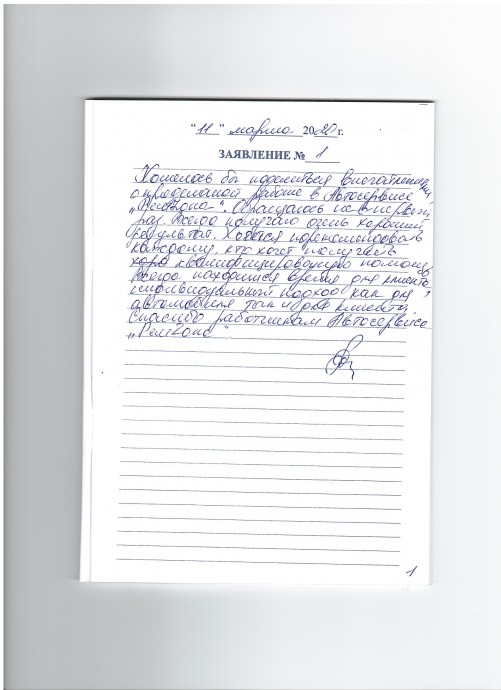 "11" марта 2020 г.
ЗАЯВЛЕНИЕ № 1
Хотелось бы поделиться впечатлениями
о проделанной работе в Автосервисе
„РемЗона". Обращалась не в первый
раз. Всегда получаю очень хороший
результат. Хочется порекомендовать
каждому, кто хочет получать
хорошо квалифицированную помощь,
всегда находится время для клиента,
индивидуальный подход как для
автомобиля так и для клиента.
Спасибо работникам Автосервиса
„РемЗона"
1